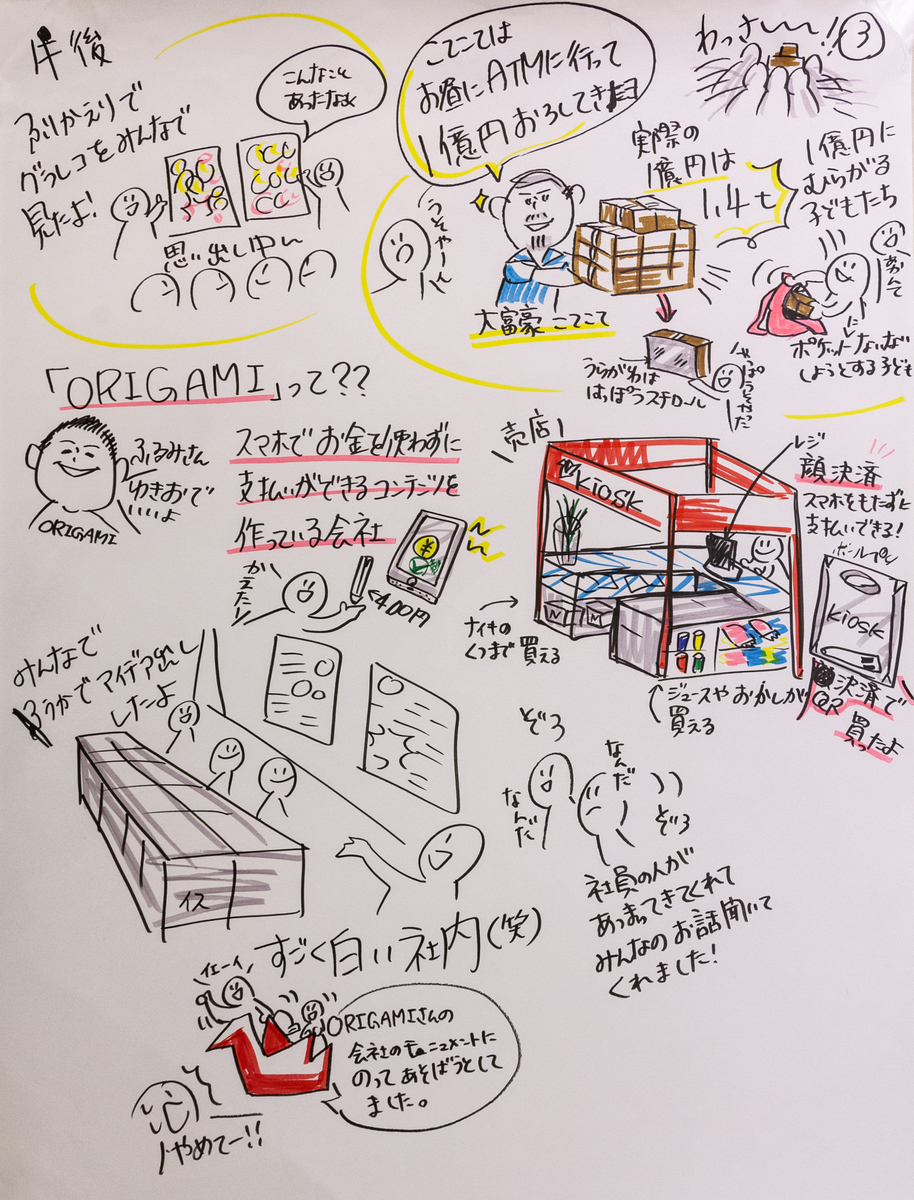 午後
ふりかえりで
グラレコをみんなで
見たよ!
こんなこと
あったなぁ
思い出し中ん
こてこては
お昼にATMに行って
1億円おろしてきたヨ
うそやーん
大富豪こてこて
実際の
1億円は
1.4t
わっさーー!
③
1億円に
むらがる
子どもたち
あかんて
ポケットないない
しようとする子ども
うらがわは
はっぽうスチロール
やっぱうそやった
「ORIGAMI」って??
ふるみさん
ゆきおで
いいよ
ORIGAMI
スマホでお金を使わずに
支払いができるコンテンツを
作っている会社
かえた!
¥
400円
売店
KIOSK
レジ
顔決済
スマホをもたずに
支払いできる!
ボールペン
KIOSK
QR決済で
買ったよ
ナイキの
くつまで買える
N
N
ジュースやおかしが
買える
みんなで
ろうかでアイデア出し
したよ
イス
ぞろ
なんだ
なんだ
ぞろ
社員の人が
あつまってきてくれて
みんなのお話聞いて
くれました!
すごく白い社内(笑)
イエーイ
ORIGAMIさんの
会社のモニュメントに
のってあそぼうとして
ました。
やめてー!!